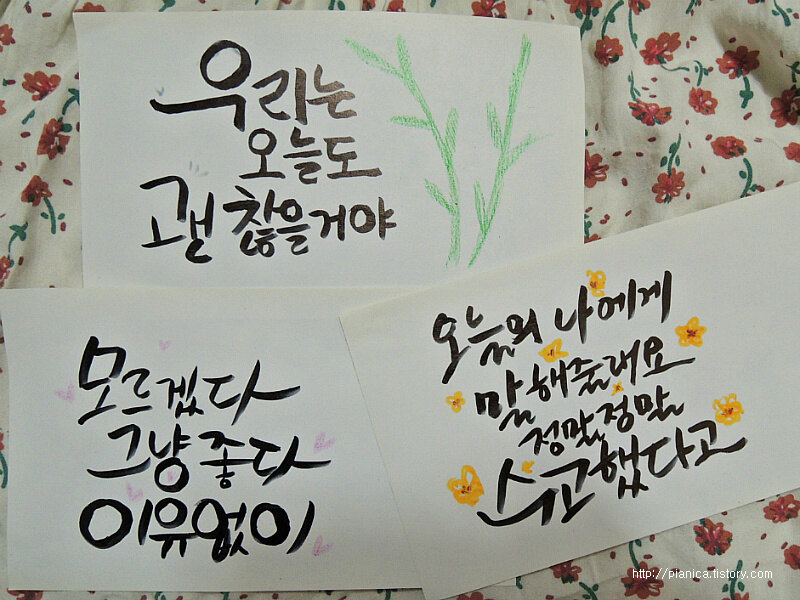 우리는
오늘도
괜찮을거야
모르겠다
그냥좋다
이유없이
오늘의 나에게
말해줄래요
정말정말
수고했다고
http://pianica.tistory.com